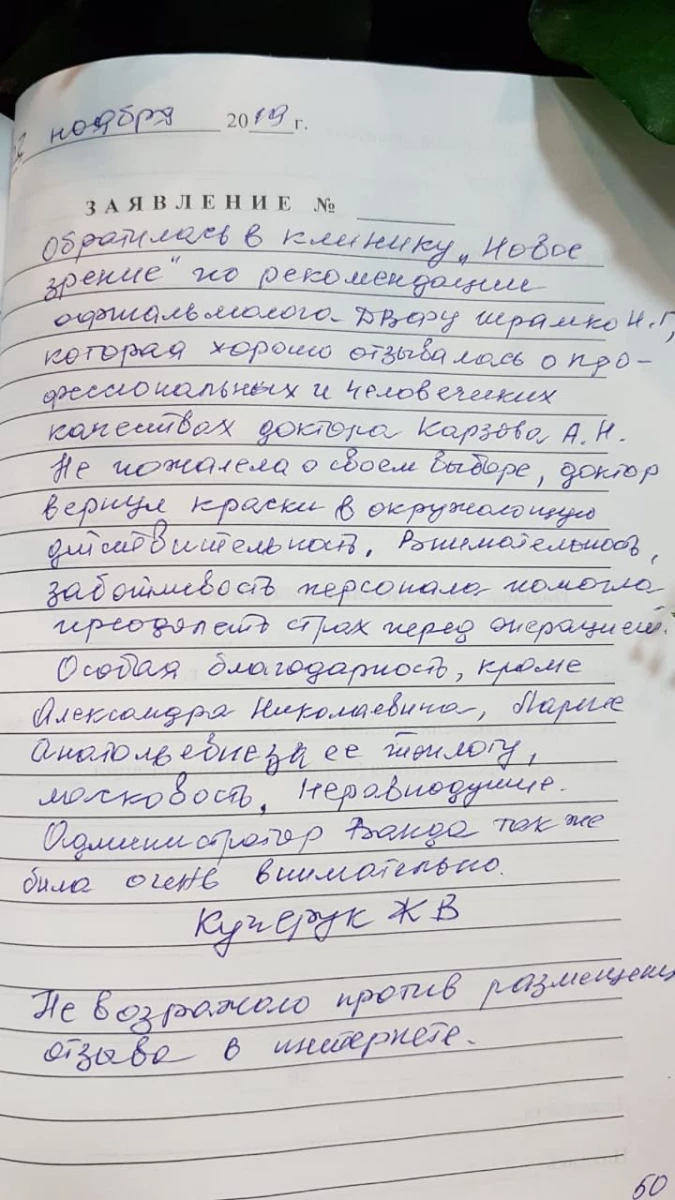 22 ноября 2019 г.
ЗАЯВЛЕНИЕ №
Обратилась в клинику „Новое
зрение" по рекомендации
офтальмолога ДВФУ Шрамко Н.Г,
которая хорошо отзывалась о про-
фессиональных и человеческих
качествах доктора Карзова А.Н.
Не пожалела о своем выборе, доктор
вернул краски в окружающую
действительность. Внимательность,
заботливость персонала помогла
преодолеть страх перед операцией.
Особая благодарность, кроме
Александра Николаевича, Марине
Анатольевне за ее теплоту,
маковость, неравнодушие.
Администратор Ванда так же
била очень внимательно.
Кучерук Ж В
Не возражаю против размещения
отзыва в интернете.
50